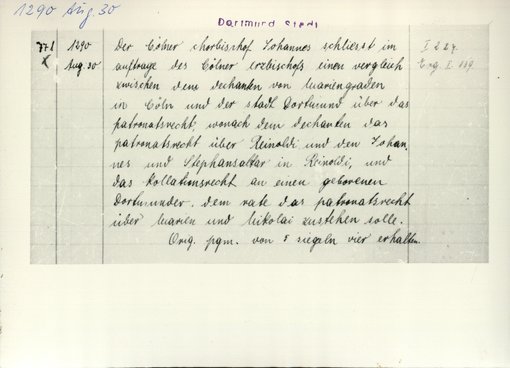 1290 Aug. 30
Dortmund Stadt
1290
Aug. 30
Der Cölner chorbischof Johannes schliesst im
auftrage des Cölner erzbischofs einen vergleich
zwischen dem dechanten von Mariengraden
in Cöln und der stadt Dortmund über das
patronatsrecht, wonach dem dechanten das
patronatsrecht über Reinoldi und den Johan-
nes und Stephansaltar in Reinoldi, und
das Kollationsrecht an einen geborenen
Dortmunder, dem rate das patronatsrecht
über Marien und Nikolai zustehen solle.
Orig. pgm. von 5 siegeln vier erhalten.
I 227.
Erg. I.